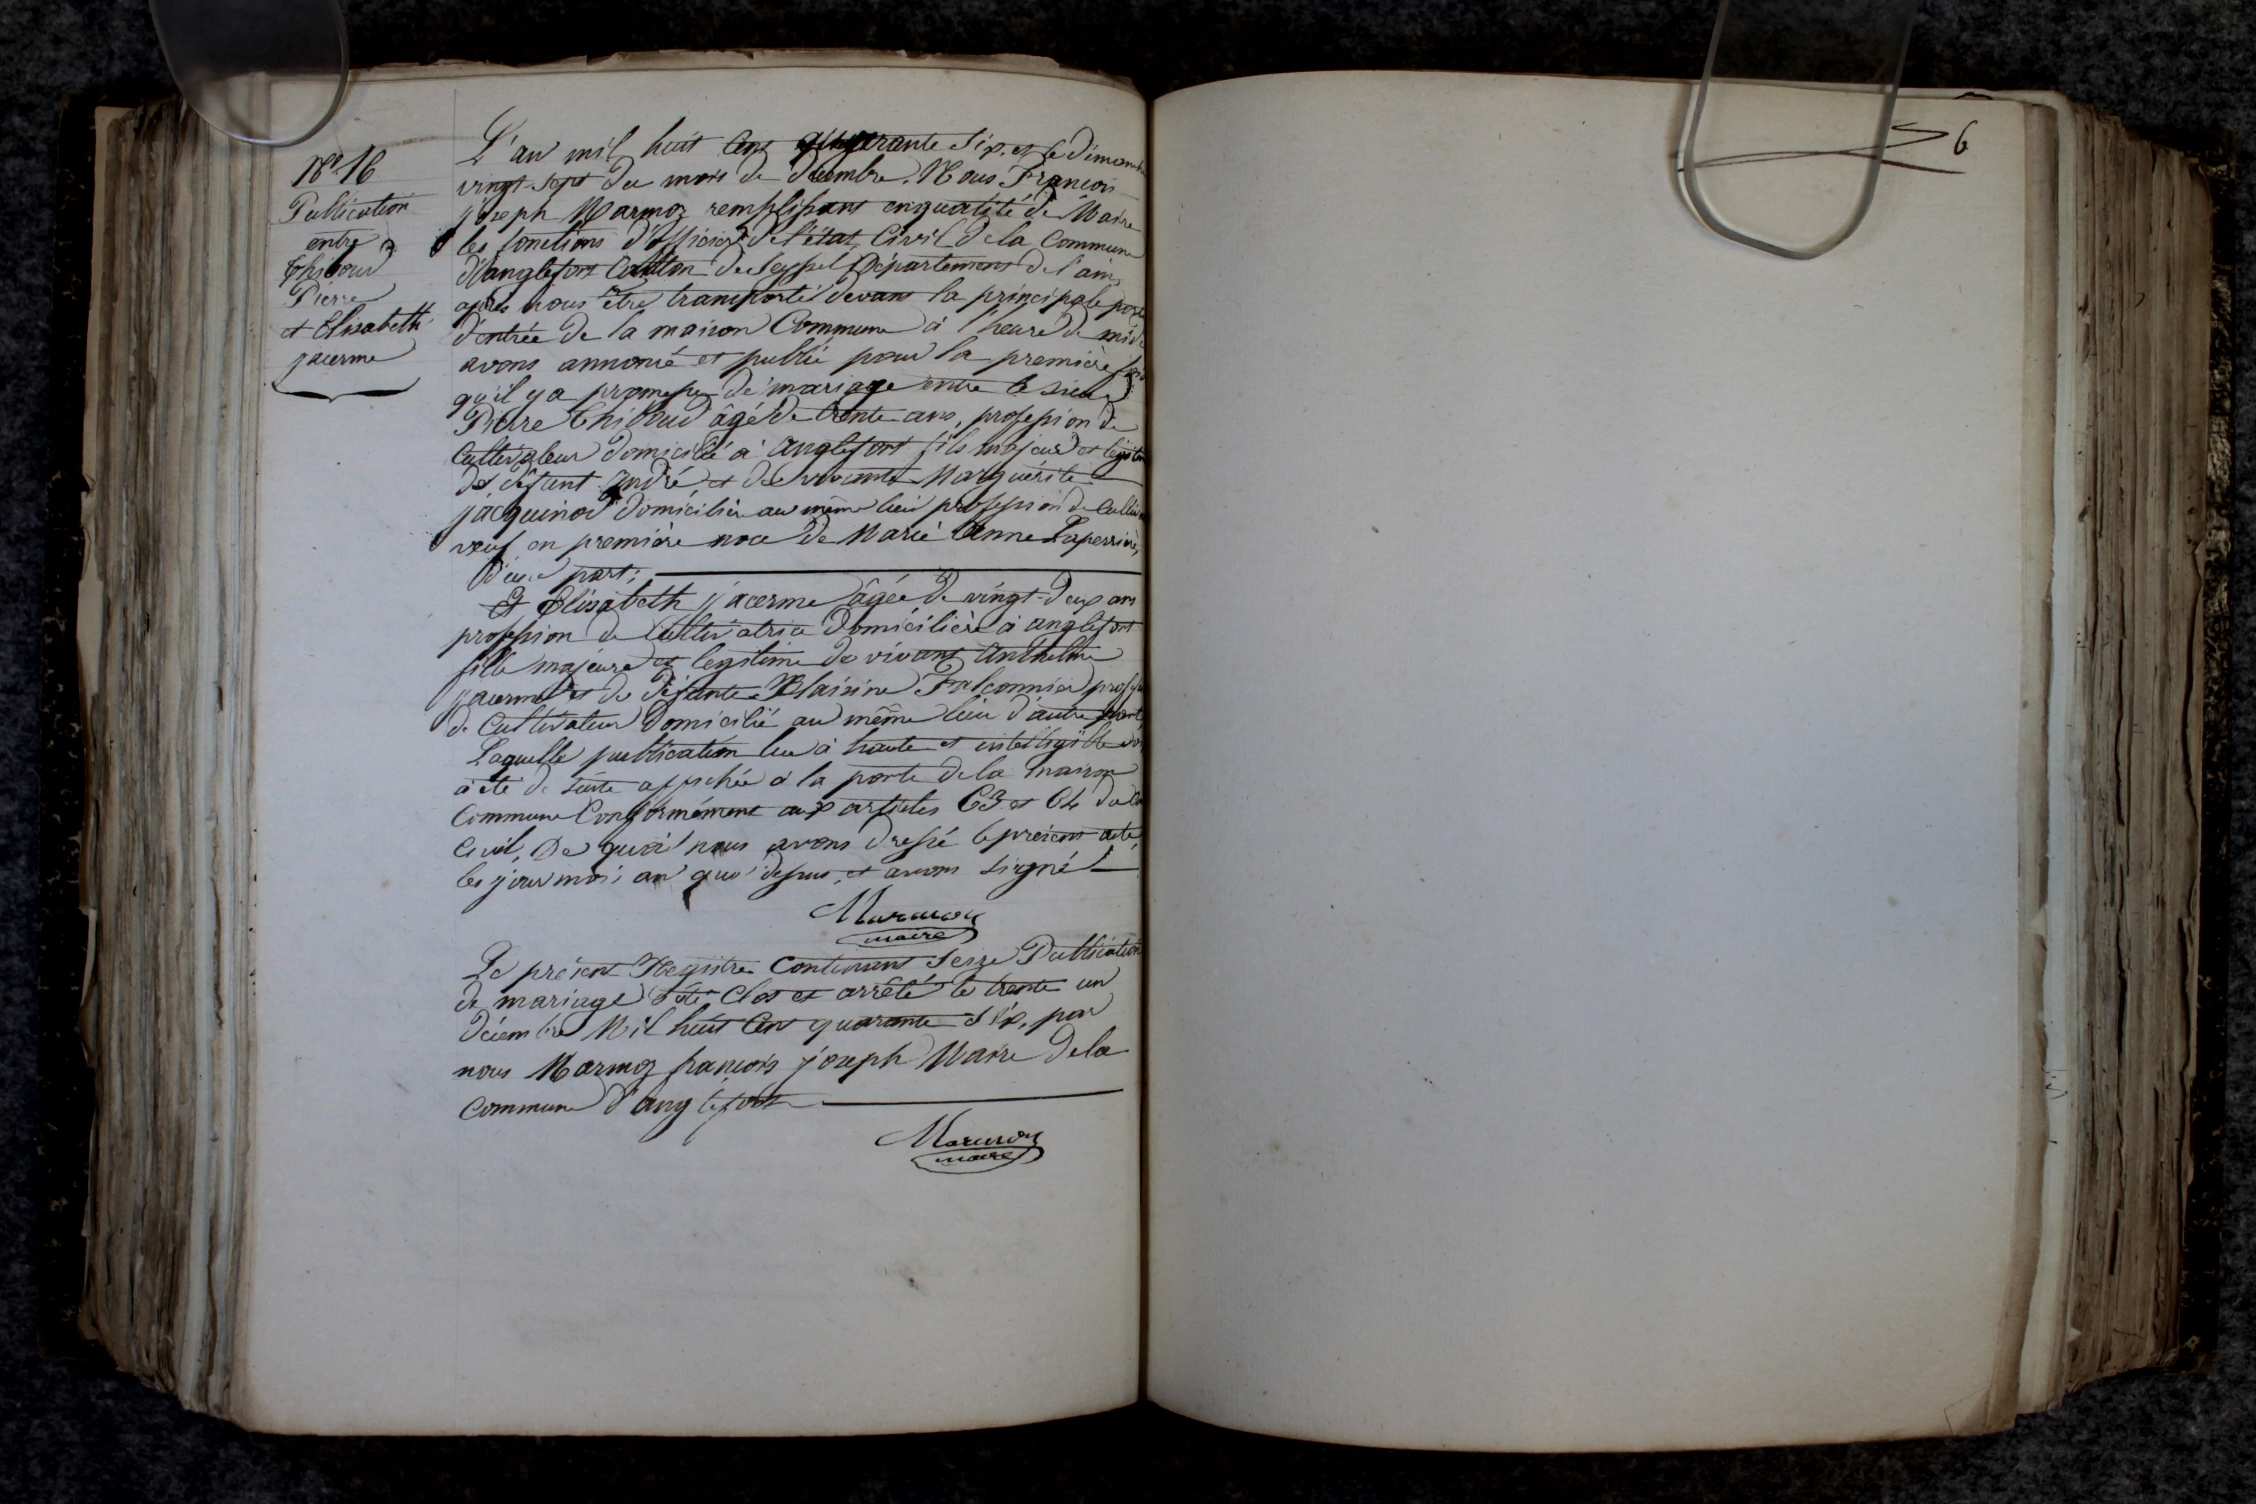 N° 16
Publication
entre
Thiboud
Pierre
et Elisabeth
jacerme
L'an mil huit Cent quarante Six. et le dimanche
vingt-sept du mois de decembre. Nous François
joseph Marmoz remplissant en qualité de Maire
les fonctions d'officier de l'état Civil de la Commune
d'anglefort Canton de Seyssel Département de l'ain,
après nous être transporté devant la principale porte
d'entrée de la maison Commune à l'heure de midi
avons annoncé et publié pour la première fois
qu'il y a promesse de mariage entre le sieur
Pierre Thiboud âgé de trente ans, profession de
Cultivateur domicilié à anglefort fils majeur et légitime
de défunt andré et de vivante Marguerite
jacquinod domiciliée au même lieu profession de
veuf en première noce de Marie Anne Laperrière,
d'une part;
Et Elisabeth jacerme âgée de vingt-deux ans
profession de Cultivatrice domicilière à anglefort
fille majeure et legitime de vivant Anthelme
jacerme et de défunte Blaisine Falconnier
de Cultivateur domicilié au même lieu d'autre part,
Laquelle publication lue à haute et intelligible
a été de suite affichée à la porte de la maison
Commune Conformément aux articles 63 et 64 du
Civil, De quoi nous avons dressé le présent acte,
les jour mois an que dessus, et avons signé
Marmoz
maire
Le présent Registre Contenant Seize Publications
de mariage été Clos et arrêté le trente un
décembre Mil huit Cent quarante Six, par
nous Marmoz françois joseph Maire de la
Commune d'anglefort
Marmoz
maire
6